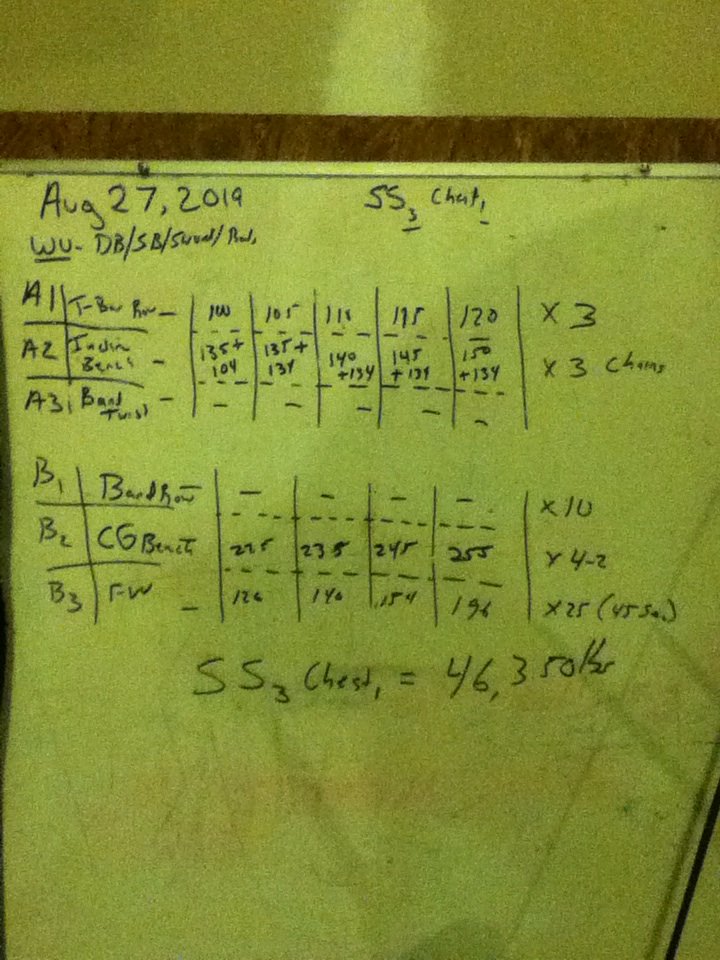 Aug 27, 2019 SS3 Chest1
WU- DB/SB/
A1 T-Bar Row - 100 105 110 195 120 X 3
A2 Incline Bench - 135+104 135+134 140+134 145+134 150+134 X 3 Chains
A3 Band Twist - - - - - -
B1 Band Row - - - - - X10
B2 CG Bench 225 235 245 255 X 4-2
B3 FW - 126 140 154 196 X25 (45 Sec)
SS3 Chest1 = 46,350 lbs